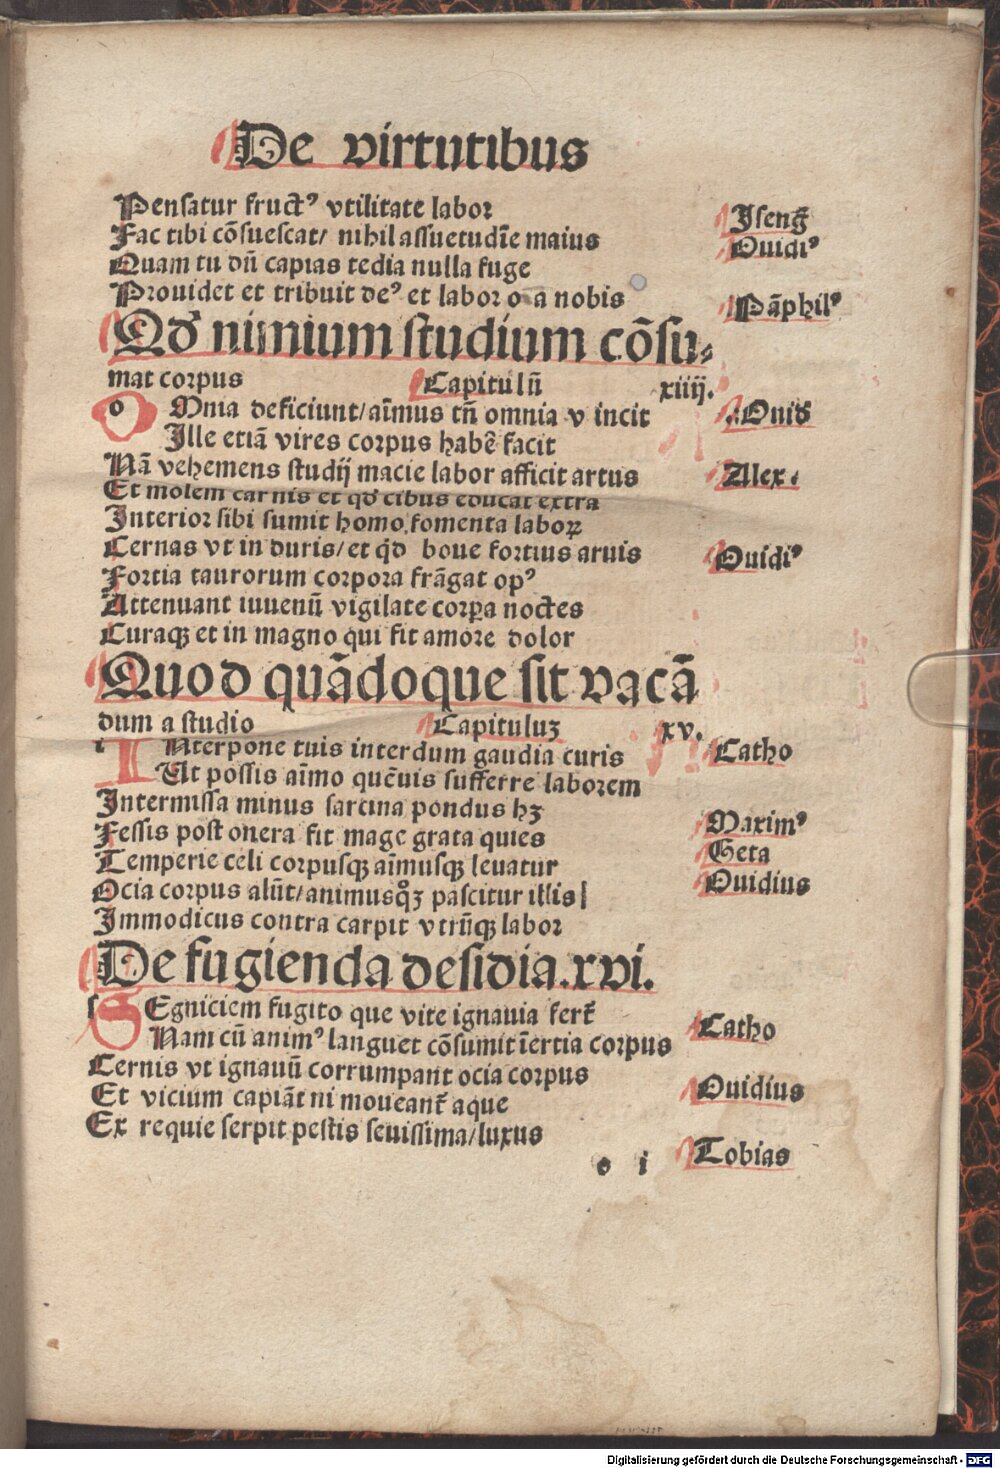 De virtutibus
Pensatur fructꝰ vtilitate labor
Jseng̃
Fac tibi cõsuescat/ nihil assuetudĩe maius
Ouidiꝰ
Quam tu dũ capias tedia nulla fuge
Prouidet et tribuit deꝰ et labor oĩa nobis
Pãphilꝰ
Qd' nimium studium cõsu-
mat corpus Capitulũ xiiij.
o Mnia deficiunt/aĩmus tñ omnia v incit
Ouid'
Ille etiã vires corpus habẽ facit
Nã vehemens studij macie labor afficit artus
Alex.
Et molem carnis et qd' cibus educat extra
Interior sibi sumit homo fomenta laboꝝ
Cernas vt in duris/et q̇d boue fortius aruis
Ouidiꝰ
Fortia taurorum corpora frãgat opꝰ
Attenuant iuuenũ vigilate corꝑa noctes
Curaqꝫ et in magno qui fit amore dolor
Quod quãdoque sit vacã
dum a studio Capituluꝫ xv.
i Nterpone tuis interdum gaudia curis
Catho
Ut possis aĩmo quẽuis sufferre laborem
Intermissa minus sarcina pondus hꝫ
Maximꝰ
Fessis post onera fit mage grata quies
Geta
Temperie celi corpusqꝫ aĩmusqꝫ leuatur
Ouidius
Ocia corpus alũt/animusqꝫ pascitur illis
Immodicus contra carpit vtrũqꝫ labor
De fugienda desidia.xvi.
s Egniciem fugito que vite ignauia fert̃
Catho
Nam cũ animꝰ languet cõsumit ĩertia corpus
Cernis vt ignauũ corrumpant ocia corpus
Ouidius
Et vicium capiãt ni moueant̃ aque
Ex requie serpit pestis seuissima/luxus
Tobias
o i
Digitalisierung gefördert durch die Deutsche Forschungsgemeinschaft - DFG